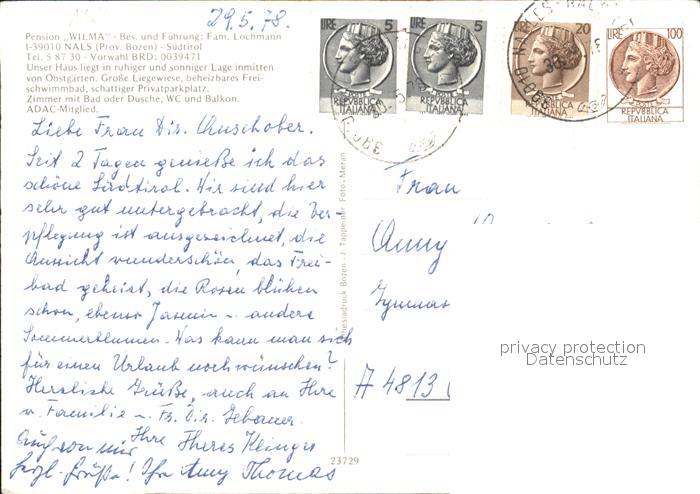 29.5.78.
Pension „WILMA" - Bes. und Führung: Fam. Lochmann
I-39010 NALS (Prov. Bozen) - Südtirol
Tel. 5 87 30 - Vorwahl BRD: 0039471
Unser Haus liegt in ruhiger und sonniger Lage inmitten
von Obstgärten. Große Liegewiese, beheizbares Frei-
schwimmbad, schattiger Privatparkplatz.
Zimmer mit Bad oder Dusche, WC und Balkon.
ADAC-Mitglied.
Liebe Frau Dir. Auschober.
Seit 2 Tagen genieße ich das
schöne Südtirol. Wir sind hier
sehr gut untergebracht, die Ver-
pflegung ist ausgezeichnet, die
Aussicht wunderschön, das Frei-
bad geheizt, die Rosen blühen
schon, ebenso Jasmin u. andere
Sommerblumen. Was kann man sich
für einen Urlaub noch wünschen?
Herzliche Grüße, auch an Ihre
w. Familie u. Fr. Dir. Gebauer.
Ihre Theres Klinger
Auch von mir
herzl. Grüße! Ihre Amy Thomas
J. Tappeiner Foto - Meran
23729
LIRE 5
REPVBBLICA
ITALIANA
LIRE 5
REPVBBLICA
ITALIANA
LIRE 20
REPVBBLICA
ITALIANA
LIRE 100
REPVBBLICA
ITALIANA
Frau
Anny
Gymnas
A 4813
privacy protection
Datenschutz